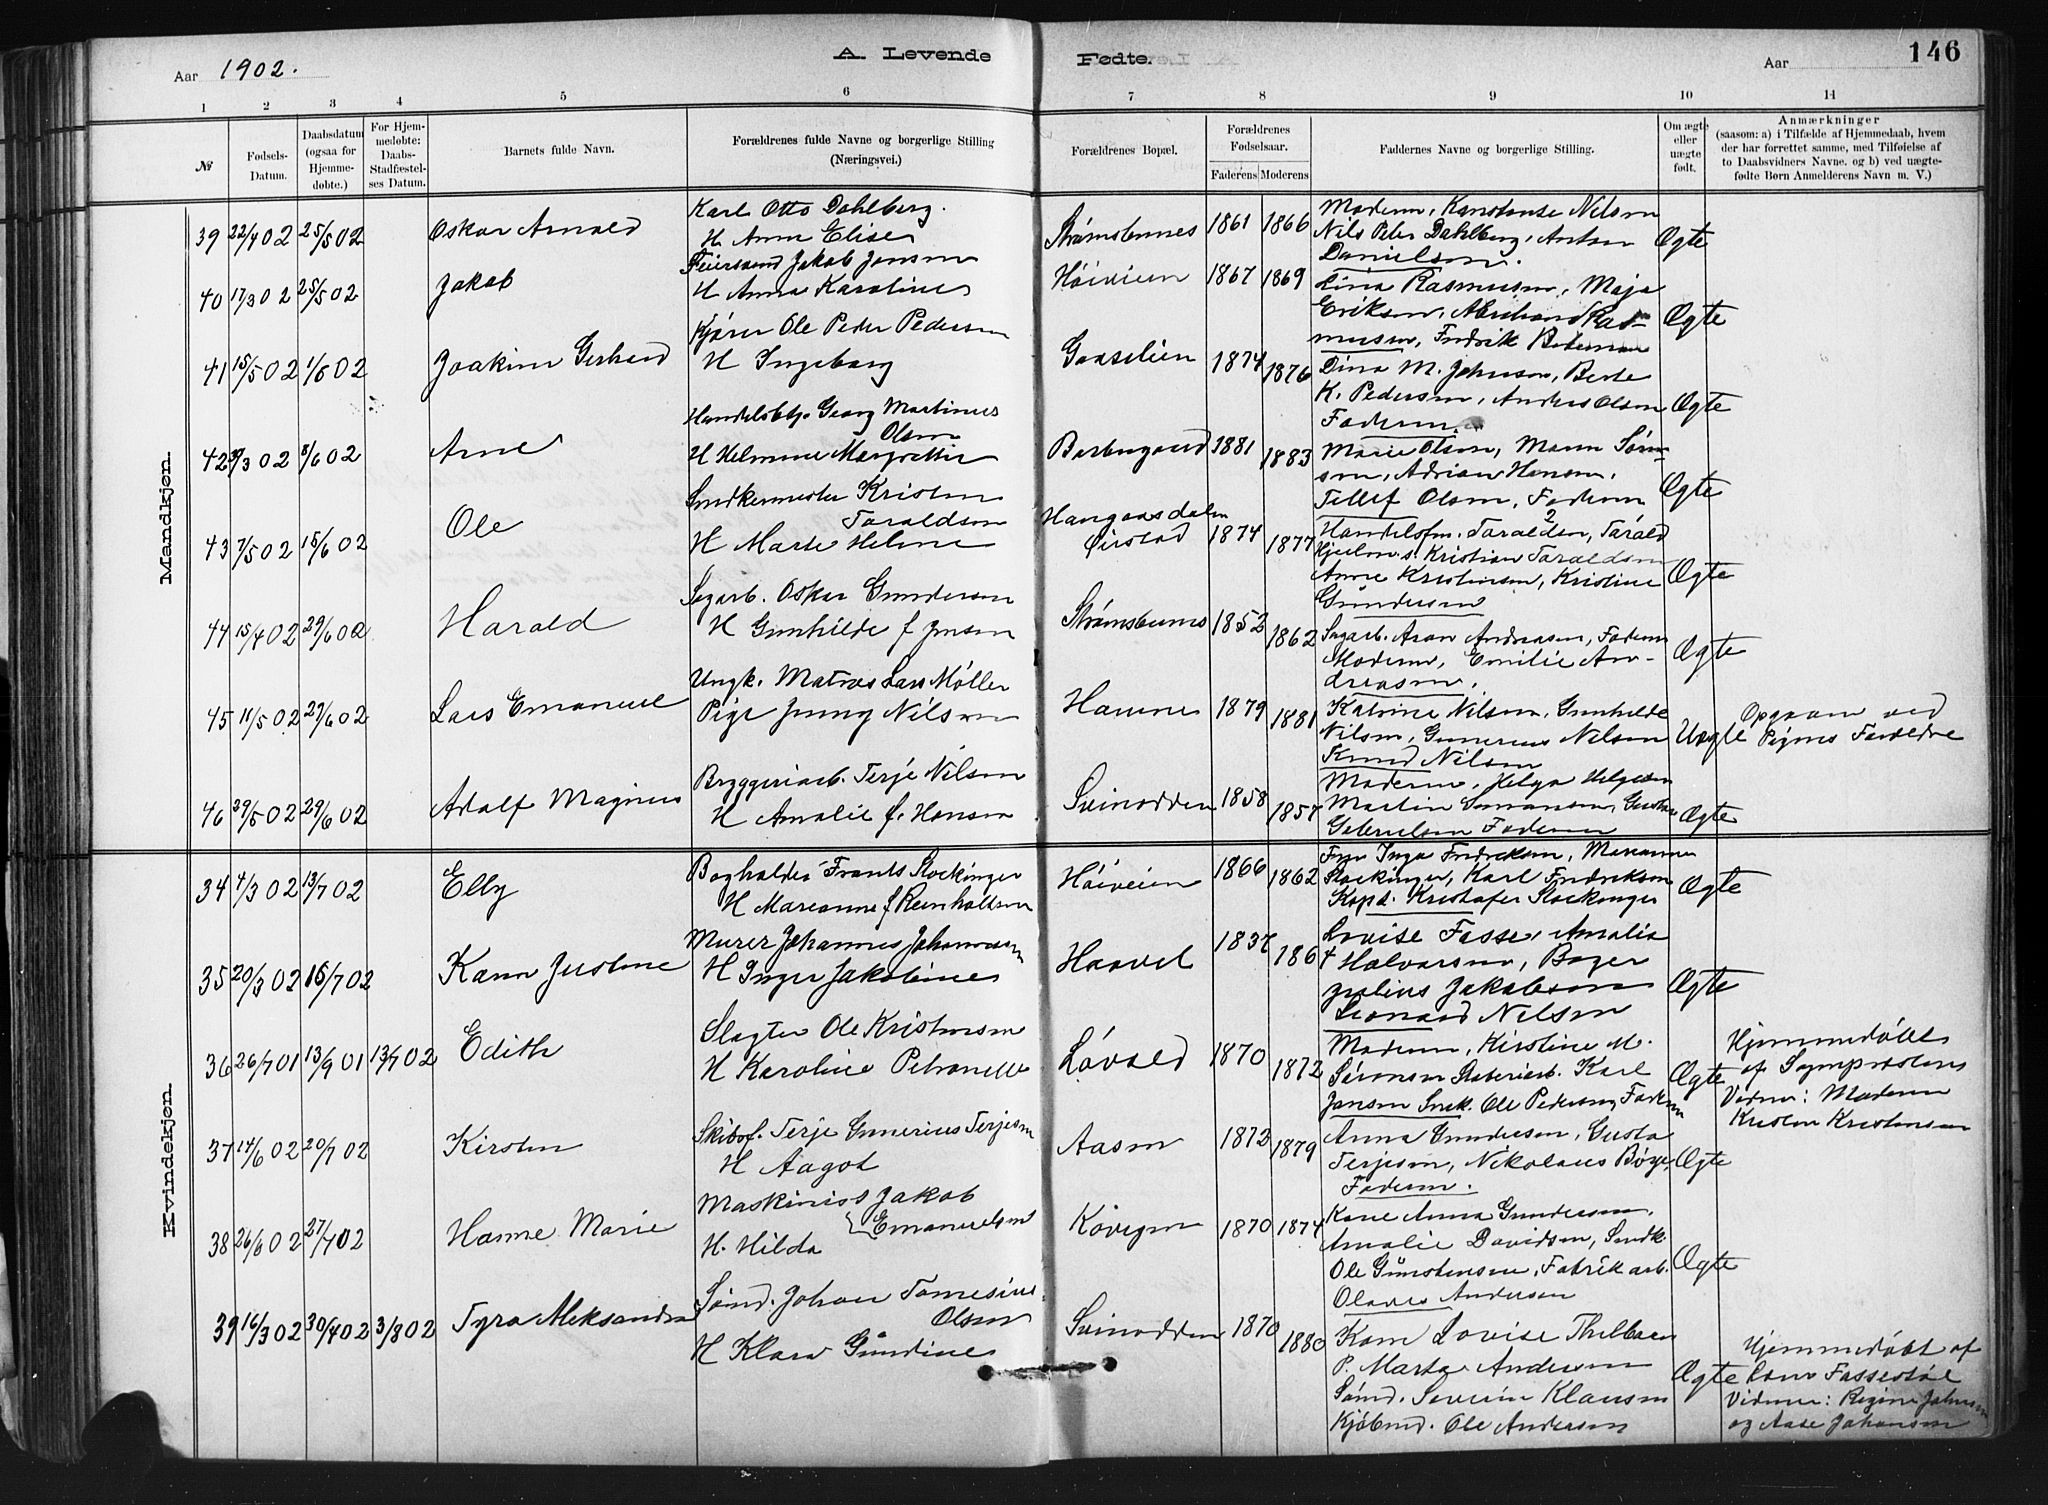 Aar 1902.
A. Levende Fødte.
Aar
146
1 2 3 4 5 6 7 8 9 10 11
№
Fødsels-Datum.
Daabsdatum (ogsaa for Hjemmedøbte.)
For Hjemmedøbte: Daabs-Stadfæstelses Datum.
Barnets fulde Navn.
Forældrenes fulde Navne og borgerlige Stilling (Næringsvei.)
Forældrenes Bopæl.
Forældrenes Fødselsaar.
Faderens Moderens
Faddernes Navne og borgerlige Stilling.
Om ægte eller uægte født.
Anmærkninger
(saasom: a) i Tilfælde af Hjemmedaab, hvem der har forrettet samme, med Tilføielse af to Daabsvidners Navne. og b) ved uægtefødte Børn Anmelderens Navn m. V.)
Mandkjøn.
39 22/4 02 25/5 02 Oskar Arnold
Karl Otto Dahlberg.
H. Anna Elise
Strømsbunes 1861 1866
Moderen, Konstanse Nilsen
Nils Peter Dahlberg, Anton
Danielsen.
Ægte
40 17/3 02 25/5 02 Jakob
Feiersvend Jakob Jensen
H Anna Karoline
Høiveien 1867 1869
Lina Rasmussen, Maja
Eriksen, Abraham Ras-
mussen, Fredrik
Ægte
41 15/5 02 1/6 02 Joakim Gerhard
Kjører Ole Peder Pedersen
H Ingeborg
Gaaselien 1874 1876
Dina M. Johnsen, Berte
K. Pedersen, Anders Olsen
Faderen.
Ægte
42 3/3 02 8/6 02 Arne
Handelsbtj. Georg Martinius
Olsen
H Helmine Margrethe
Barbugaard 1881 1883
Marie Olsen, Maren Søren-
sen, Adrian Hansen,
Tellef Olsen, Faderen
Ægte
43 7/5 02 15/6 02 Ole
Snedkermester Kristen
Taraldsen
H Marte Helene
Øirstad 1874 1877
Handelsfm. Taraldsen, Tarald
Kristian Taraldsen
Anne Kristensen, Kristine
Gundersen
Ægte
44 15/4 02 29/6 02 Harald
Sagarb. Oskar Gundersen
H Gunhilde f. Jensen
Strømsbunes 1852 1862
Sagarb. Aron Andreasen, Faderen
Moderen, Emilie An-
dreasen.
Ægte
45 11/5 02 29/6 02 Lars Emanuel
Ungk. Matros Lars Møller
Pige Jenny Nilsen
Havene 1879 1881
Katrine Nilsen, Gunhilde
Nilsen, Gunerius Nilsen
Knud Nilsen
Uægte
Opgaven ved
Pigens Forældre
46 29/5 02 29/6 02 Adolf Magnus
Bryggeriarb. Terje Nilsen
H Amalie f. Hansen
Svinodden 1858 1857
Moderen, Helga Helgesen
Martin Simonsen, Gustav
Gabrielsen Faderen
Ægte
Kvindekjøn.
34 4/3 02 13/7 02 Elly
Bogholder Frants Stockinger
H Marianne f Reinholdsen
Høiveien 1866 1862
Fru Inga Fredriksen, Marianne
Stockinger, Karl Fredriksen
Kapt. Kristofer Stockinger
Ægte
35 20/3 02 16/7 02 Karen Justine
Murer Johannes Johannesen
H Inger Jakobine
Haavet 1837 1864
Lovise Fosse, Amalia
Halvorsen, Bager
Julius Jakobsen
Leonard Nilsen
Ægte
36 26/7 01 13/9 01 13/7 02 Edith
Slagter Ole Kristensen
H Karoline Petronelle
Løvold 1870 1872
Moderen, Kirstine M.
Sørensen Støberiarb. Karl
Jensen Snek. Ole Pedersen, Faderen
Ægte
Hjemmedøbt
af Sognepresten
Vidner: Moderen
Kristen Kristensen
37 14/6 02 20/7 02 Kirsten
Skibsf. Terje Gunerius Terjesen
H Aagot
Aasen 1872 1879
Anna Gundersen, Gusta
Terjesen, Nikolaus Bøye
Faderen.
Ægte
38 26/6 02 27/7 02 Hanne Marie
Maskinist Jakob
Emanuelsen
H. Hilda
Køvigen 1870 1874
Karie Anna Gundersen,
Amalie Davidsen, Snedk.
Ole Gunstensen, Fabrikarb.
Olaves Andersen
Ægte
39 16/3 02 30/4 02 3/8 02 Tyra Aleksandra
Sømd. Johan Tomesius
Olsen
H Klara Gundine
Svinodden 1870 1880
Karen Lovise Thelksen
P. Marta Andersen
Sømd. Severin Klausen
Kjøbmd. Ole Andersen
Ægte
Hjemmedøbt af
Vidner: Regine Johnsen
og Aase Johansen